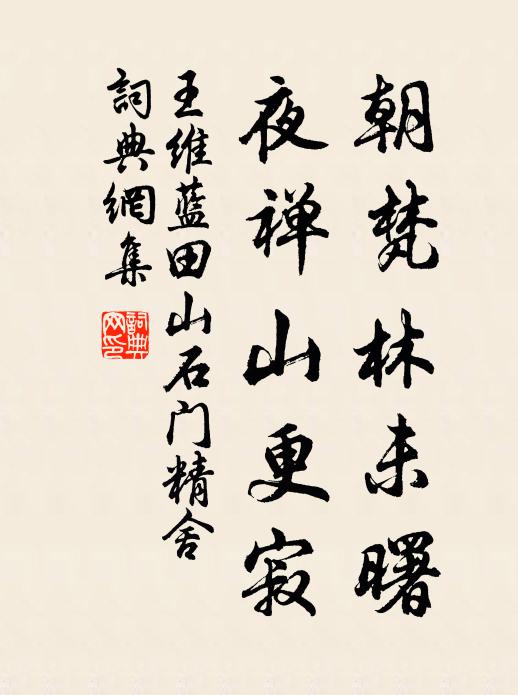 朝梵林未曙
夜禅山更寂
王维蓝田山石门精舍
詞典網集
詞典
网印